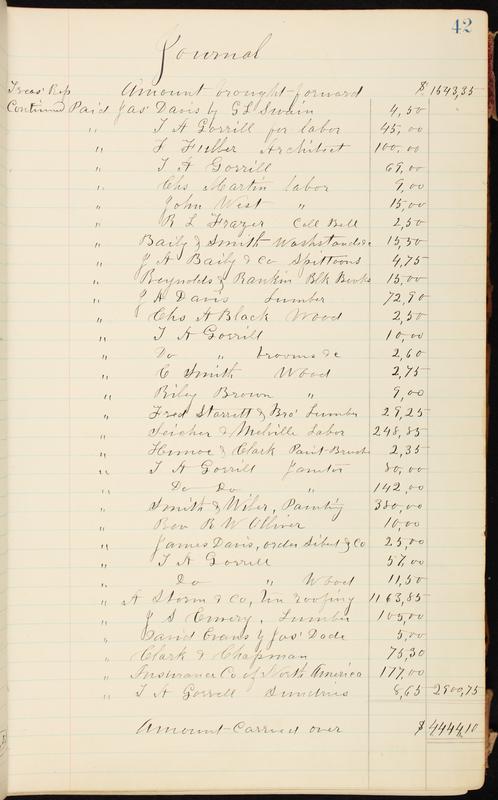 42
Journal
Treas' Rep Amount brought forward $ 1543,35
Continued Paid Jas' Davis by G L Swain 4,50
" T A Gorrill for labor 45,00
" F Fuller Architect 100,00
" T A Gorrill 69,00
" Chs Martin labor 9,00
" John West " 15,00
" R L Frazer Call Bell 2,50
" Baily & Smith Washstands &c 15,50
" J A Baily & Co Spittoons 4,75
" Reynolds & Rankin Blk Books 15,00
" J A Davis Lumber 72,90
" Chs A Black Wood 2,50
" T A Gorrill 10,00
" Do " brooms &c 2,60
" C Smith Wood 2,75
" Riley Brown " 9,00
" Fred Starrett & Bro' Lumber 29,25
" & Melville Labor 248,85
" & Clark Paint Brush 2,35
" T A Gorrill Janitor 80,00
" Do Do " 142,00
" Smith & Wiler, Painting 380,00
" Rev R W Olliver 10,00
" James Davis, order & Co 25,00
" T A Gorrill 57,00
" Do " Wood 11,50
" A Storm & Co, tin roofing 1163,85
" J S Emery, Lumber 105,00
" David Evans by Jas' Dode 5,00
" Clark & Chapman 75,30
" Insurance Co of North America 177,00
" T A Gorrell Sundries 8,65 2900,75
Amount carried over $ 4444,10